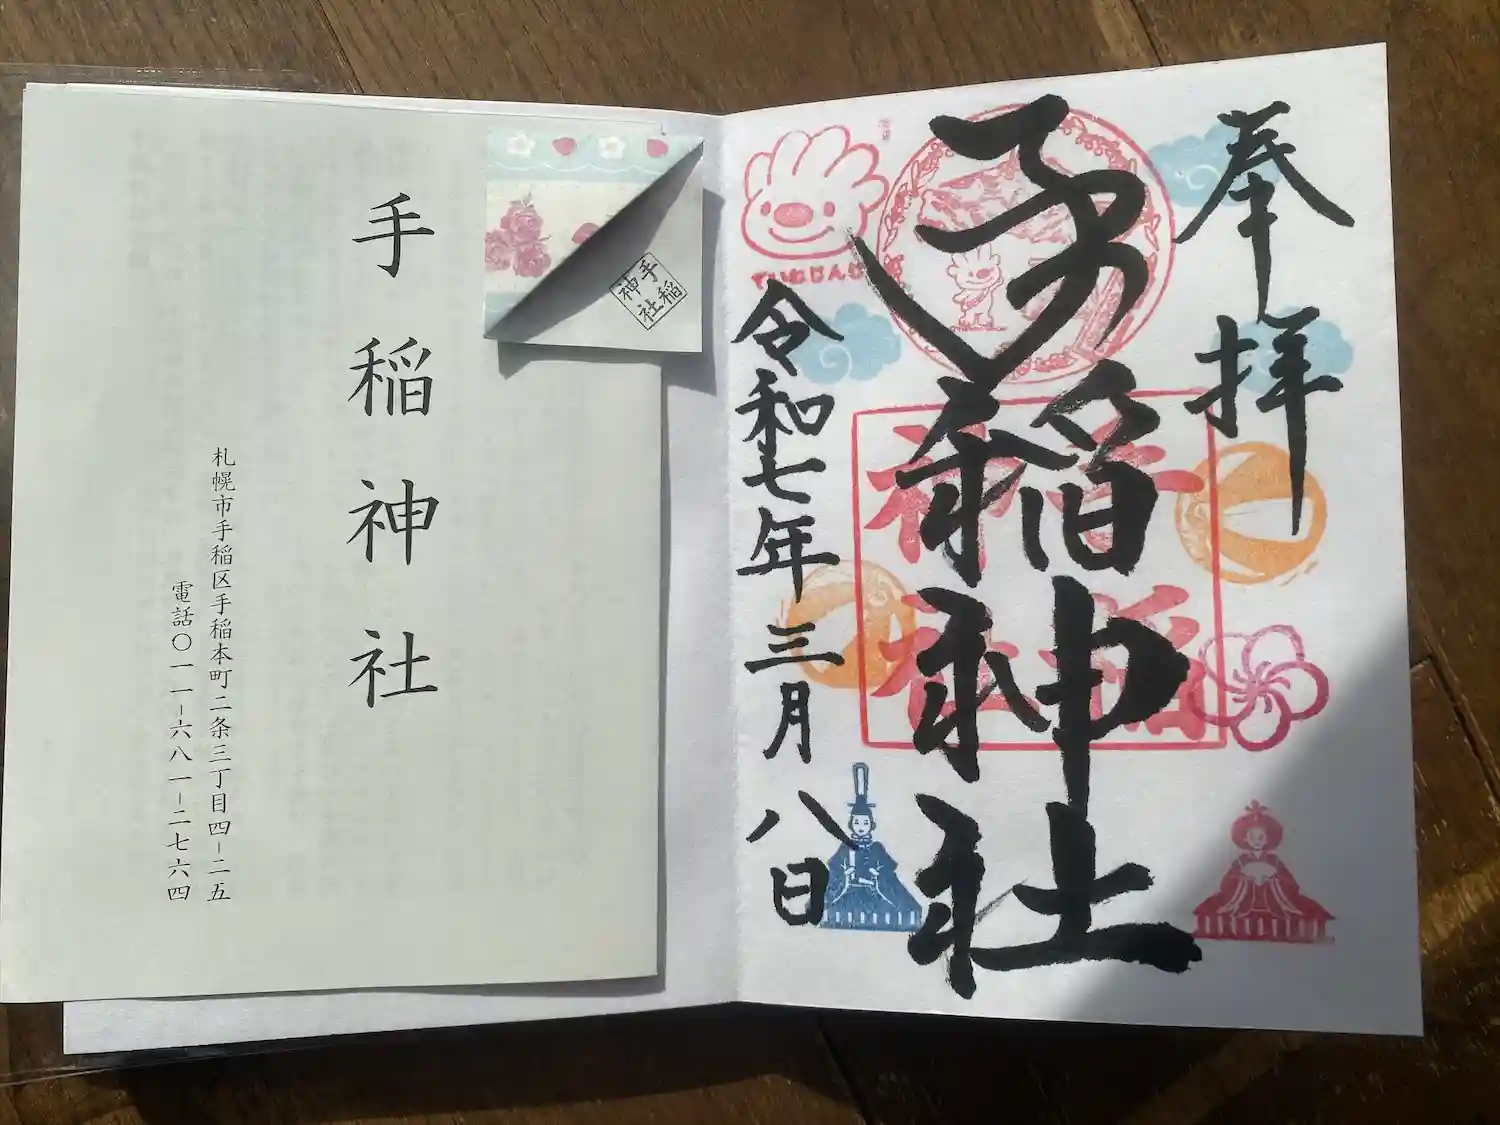 手稲神社
札幌市手稲区手稲本町二条三丁目四－二五
電話〇一一－六八一－二七六四
手稲
神社
奉拝
手稲神社
手稲
神社
ていねじんじゃ
令和七年三月八日